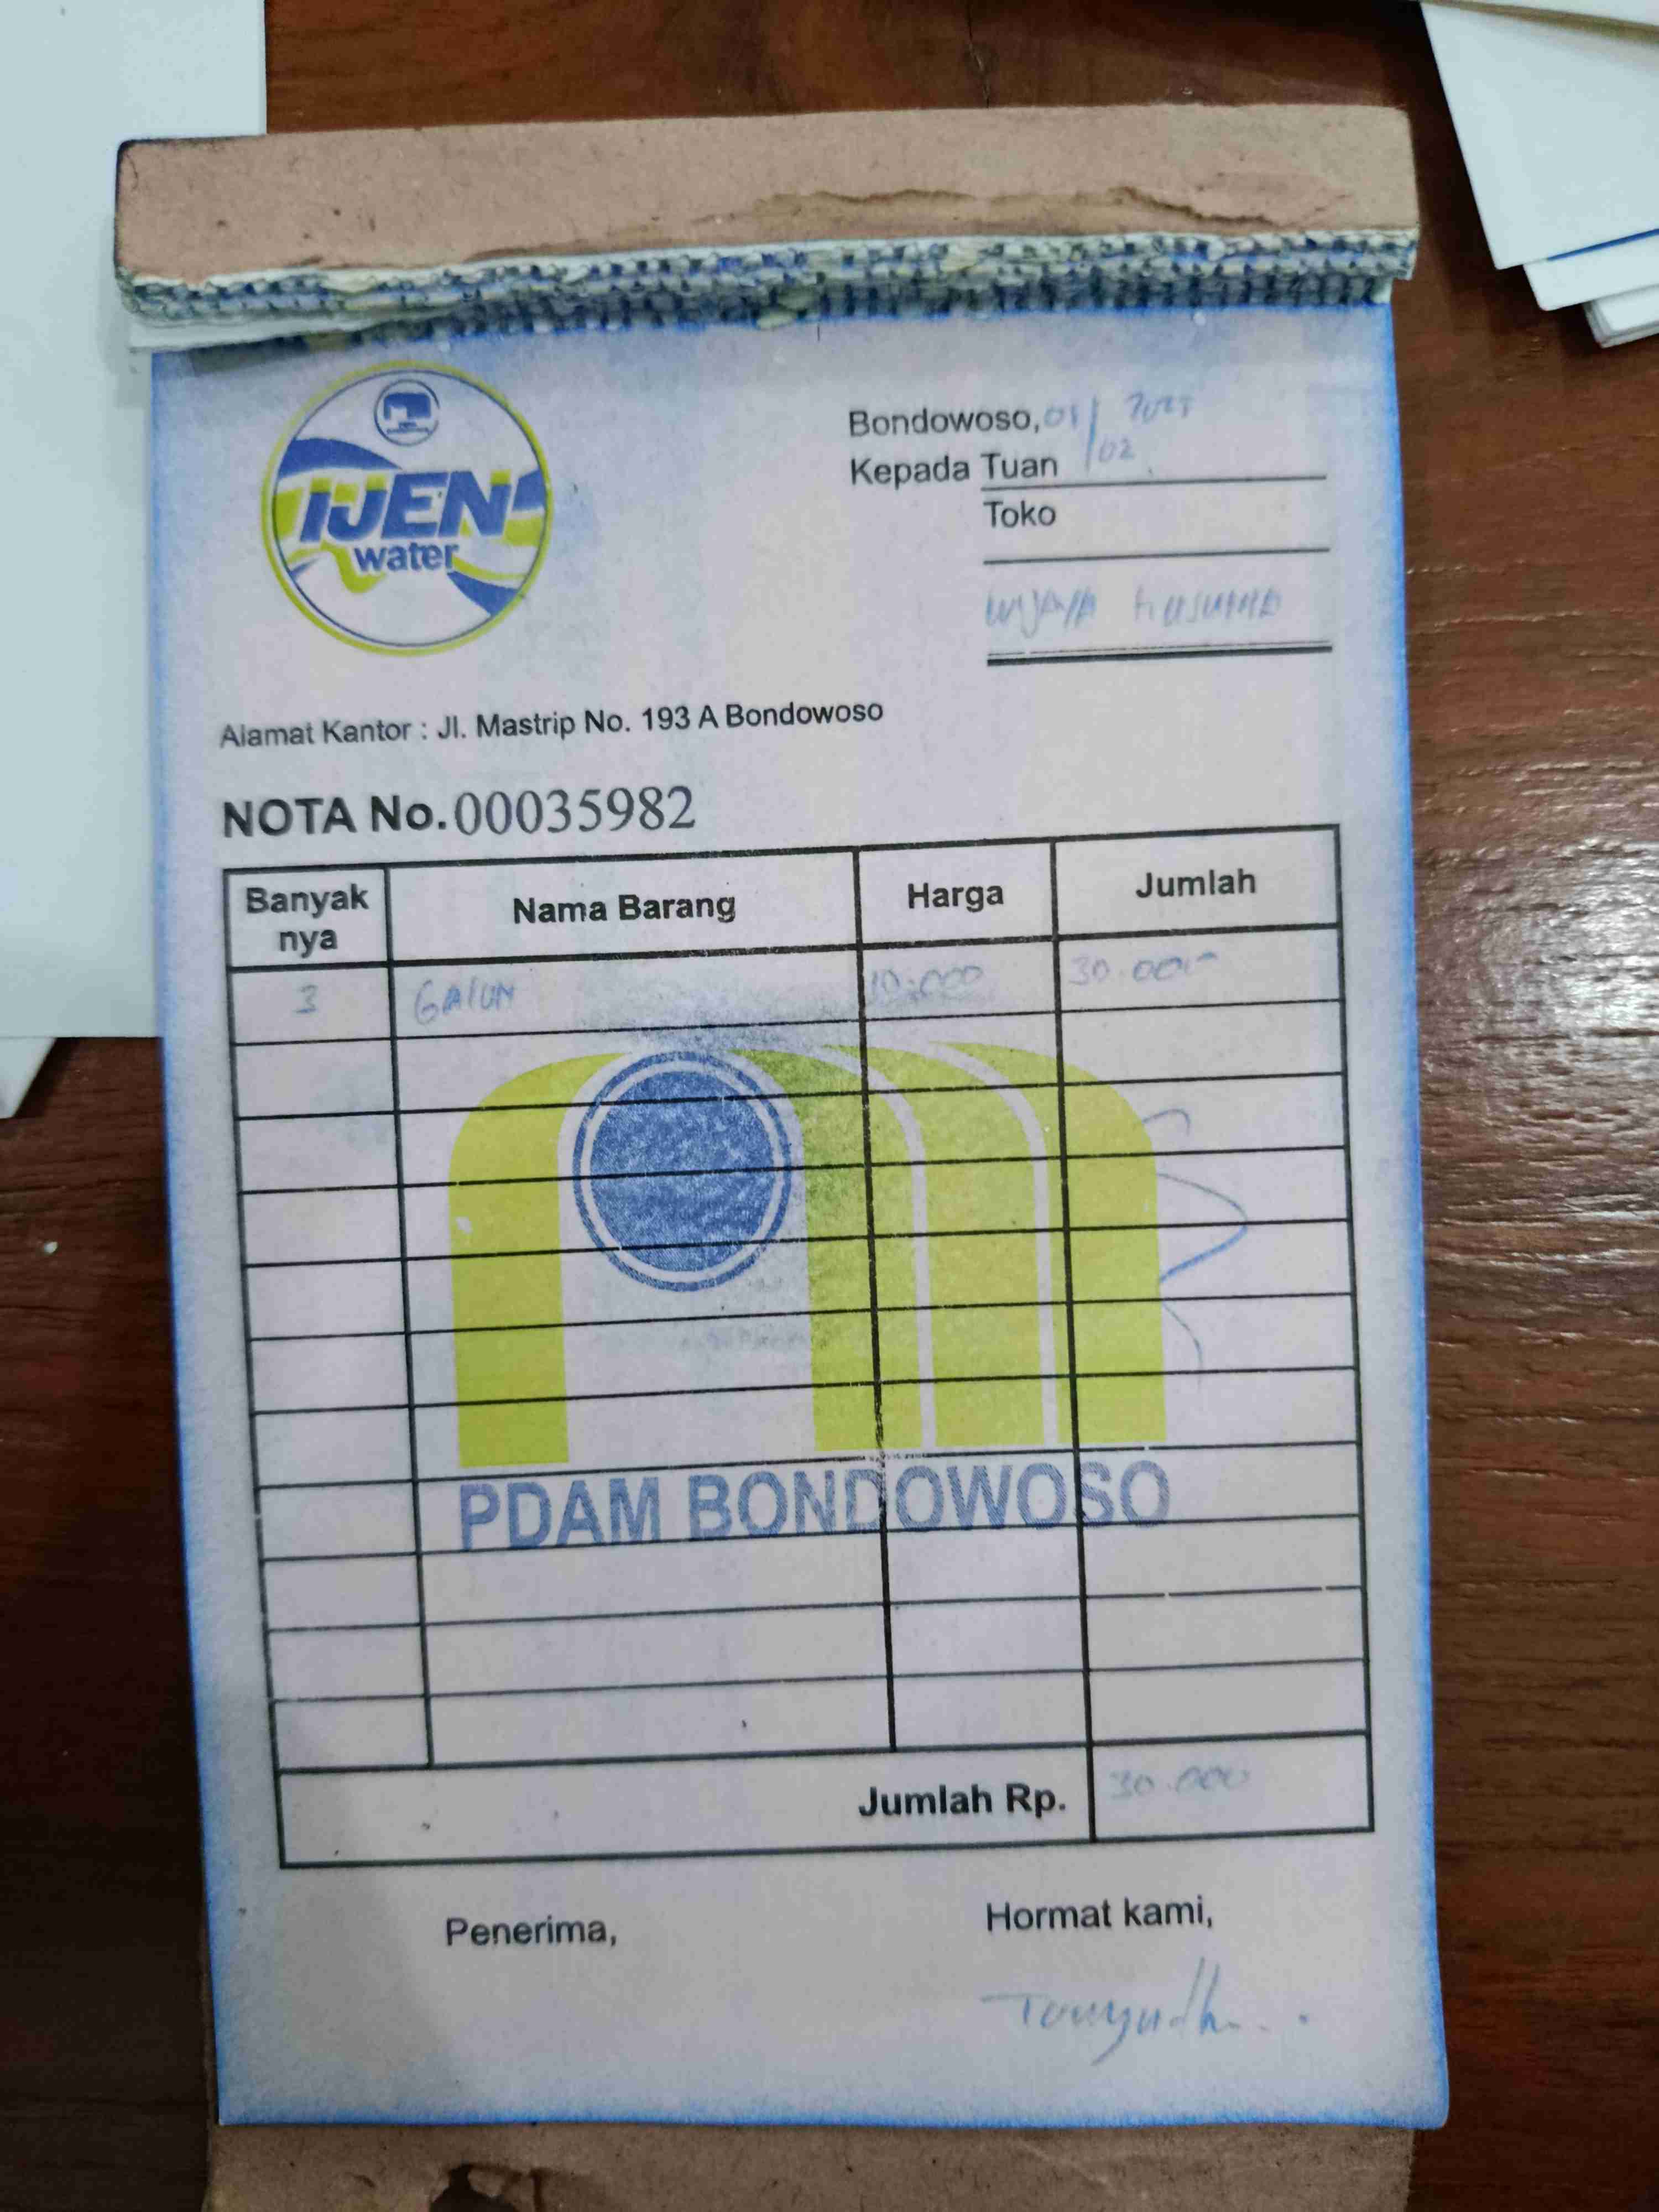 IJEN
water
Bondowoso,
02
Kepada Tuan
Toko
WIJAYA KUSUMA
Alamat Kantor : Jl. Mastrip No. 193 A Bondowoso
NOTA No. 00035982
Banyak nya Nama Barang Harga Jumlah
3 GALON 10.000 30.000
PDAM BONDOWOSO
Jumlah Rp. 30.000
Penerima, Hormat kami,